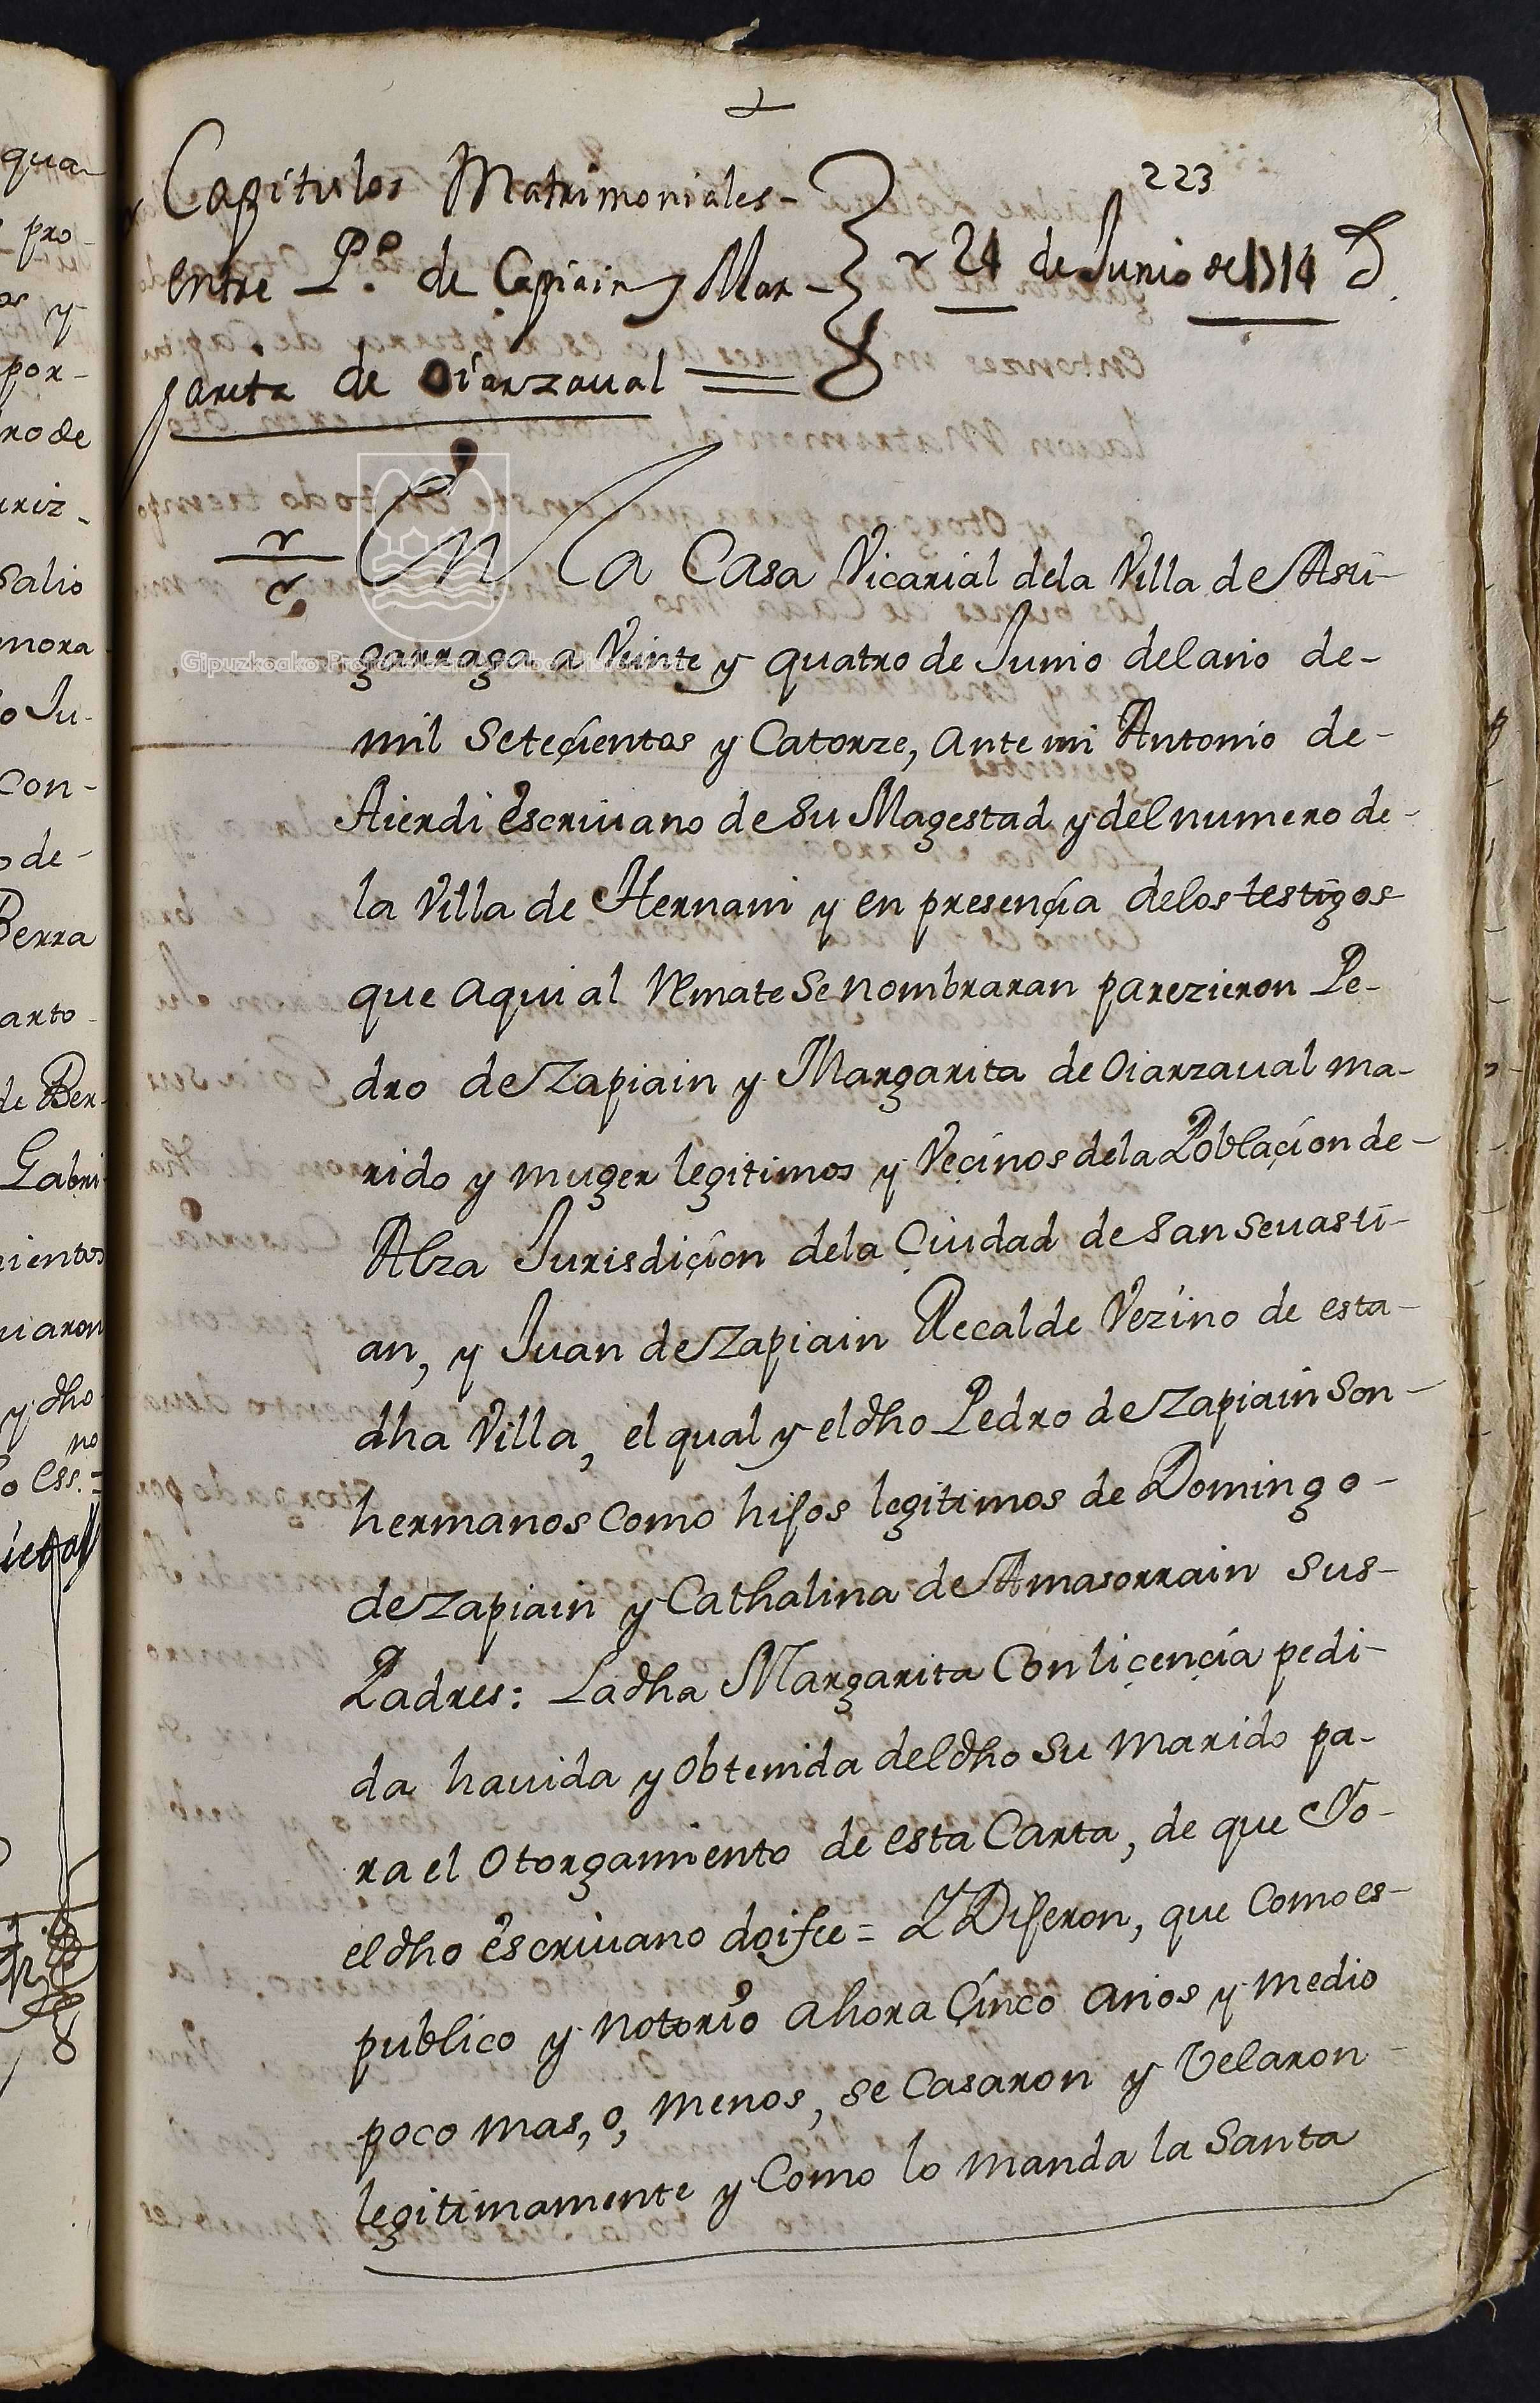 223
Capitulos Matrimoniales-
entre P.º de Çapiain y Mar-
garita de Oiarzaual
24 de Junio de 1714
En la Casa Vicarial dela Villa de Asti-
garraga a Veinte y quatro de Junio del año de-
mil Seteçientos y Catorze, ante mi Antonio de-
Aierdi escriuano de su Magestad y del numero de-
la Villa de Hernani y en presençia delos testigos
que aqui al Remate se nombraran parezieron Pe-
dro de Zapiain y Margarita de Oiarzaual ma-
rido y muger legitimos y Veçinos dela Poblaçion de-
Alza Jurisdiçion dela Çiudad de San Seuasti-
an, y Juan de Zapiain Recalde Vezino de esta-
dha Villa, el qual y el dho Pedro de Zapiain son-
hermanos como hijos legitimos de Domingo-
de Zapiain y Cathalina de Amasorrain sus-
Padres: La dha Margarita Con liçençia pedi-
da hauida y obtenida del dho su marido pa-
ra el otorgamiento de esta Carta, de que Yo-
el dho escriuano doi fee = Y Dijeron, que Como es-
publico y notorio ahora Çinco años y medio
poco mas, o, menos, se Casaron y Velaron-
legitimamente y Como lo manda la Santa
qua-
pro-
y
por-
ro de
riz-
Salio
mora
o Ju-
Con-
o de-
Berra
arto-
de Ber-
Gabri
mientos
uiaron
y dho
o ess.no =
Gipuzkoako Protokoloen Artxibo Historikoa